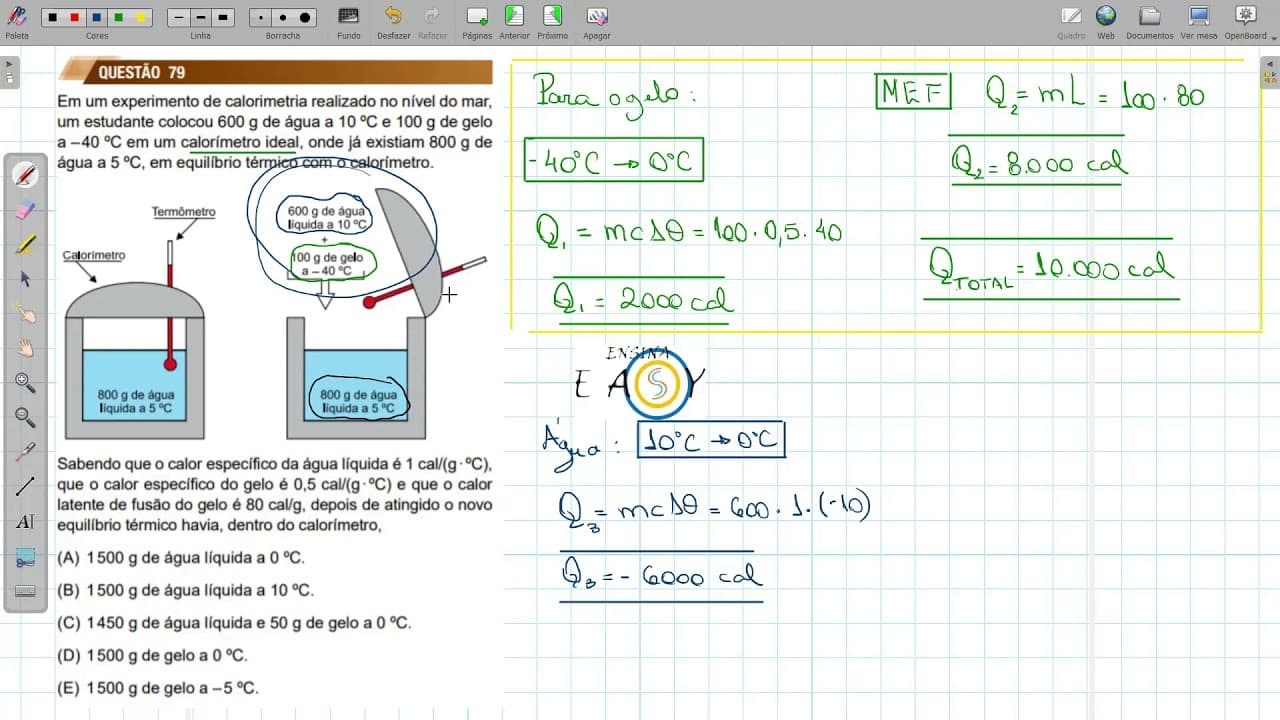 Paleta
Cores
Linha
Borracha
Fundo
Desfazer
Refazer
Páginas
Anterior
Próximo
Apagar
Quadro
Web
Documentos
Ver mesa
OpenBoard
QUESTÃO 79
Em um experimento de calorimetria realizado no nível do mar,
um estudante colocou 600 g de água a 10 ºC e 100 g de gelo
a –40 ºC em um calorímetro ideal, onde já existiam 800 g de
água a 5 ºC, em equilíbrio térmico com o calorímetro.
Termômetro
Calorímetro
800 g de água
líquida a 5 ºC
600 g de água
líquida a 10 ºC
+
100 g de gelo
a – 40 ºC
800 g de água
líquida a 5 ºC
Sabendo que o calor específico da água líquida é 1 cal/(g·ºC),
que o calor específico do gelo é 0,5 cal/(g·ºC) e que o calor
latente de fusão do gelo é 80 cal/g, depois de atingido o novo
equilíbrio térmico havia, dentro do calorímetro,
(A) 1 500 g de água líquida a 0 ºC.
(B) 1 500 g de água líquida a 10 ºC.
(C) 1 450 g de água líquida e 50 g de gelo a 0 ºC.
(D) 1 500 g de gelo a 0 ºC.
(E) 1 500 g de gelo a –5 ºC.
Para o gelo:
-40°C → 0°C
Q₁ = mcΔθ = 100 . 0,5 . 40
Q₁ = 2000 cal
MEF
Q₂ = mL = 100 . 80
Q₂ = 8.000 cal
QTOTAL = 10.000 cal
ENSINA
EASY
Água: 10°C → 0°C
Q₃ = mcΔθ = 600 . 1 . (-10)
Q₃ = - 6000 cal
AI